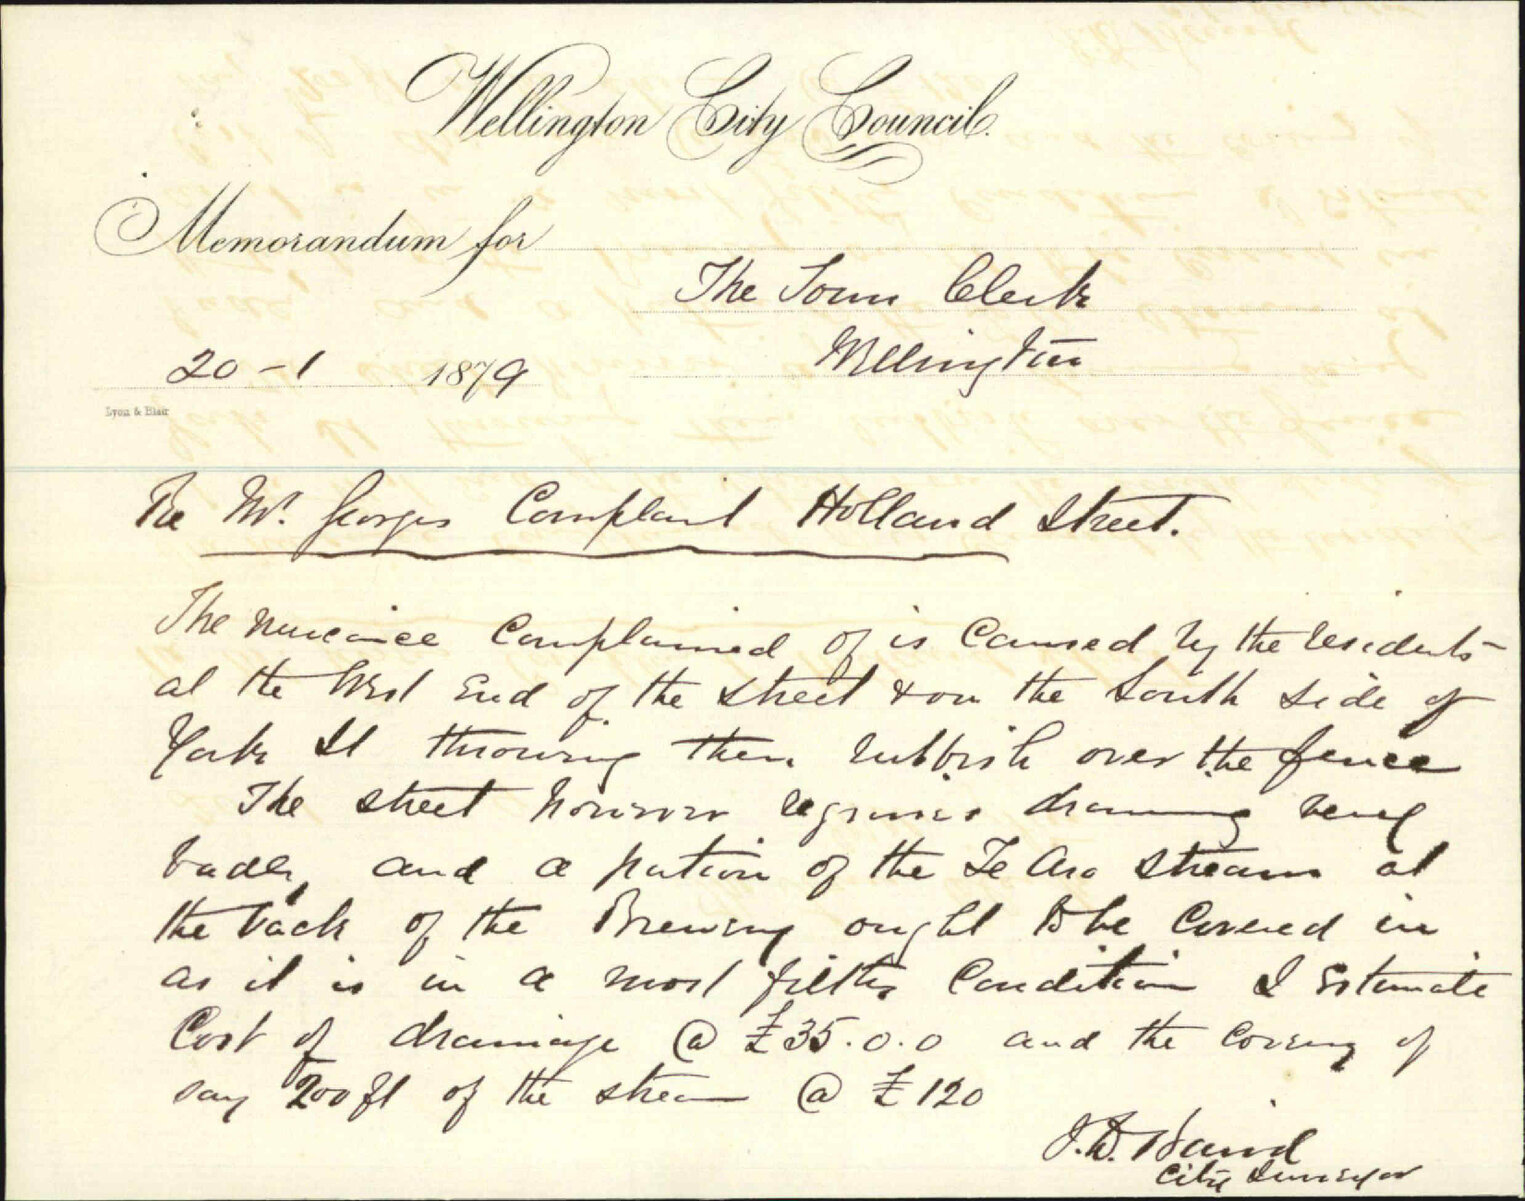 Wellington City Council.
Memorandum for
The Town Clerk
Wellington
20-1 1879
Lyon & Blair
Re Mr. Georges Complaint Holland Street.
The nuicance Complained of is Caused by the residents
at the West End of the street & on the South side of
York St throwing their rubbish over the fence
The street however requires draining very
badly and a portion of the Te Aro Stream at
the back of the Brewery ought to be Covered in
as it is in a most filthy Condition I Estimate
Cost of drainage @ £35.0.0 and the Covering of
say 200 ft of the stream @ £120
J.D. Baird
City Surveyor